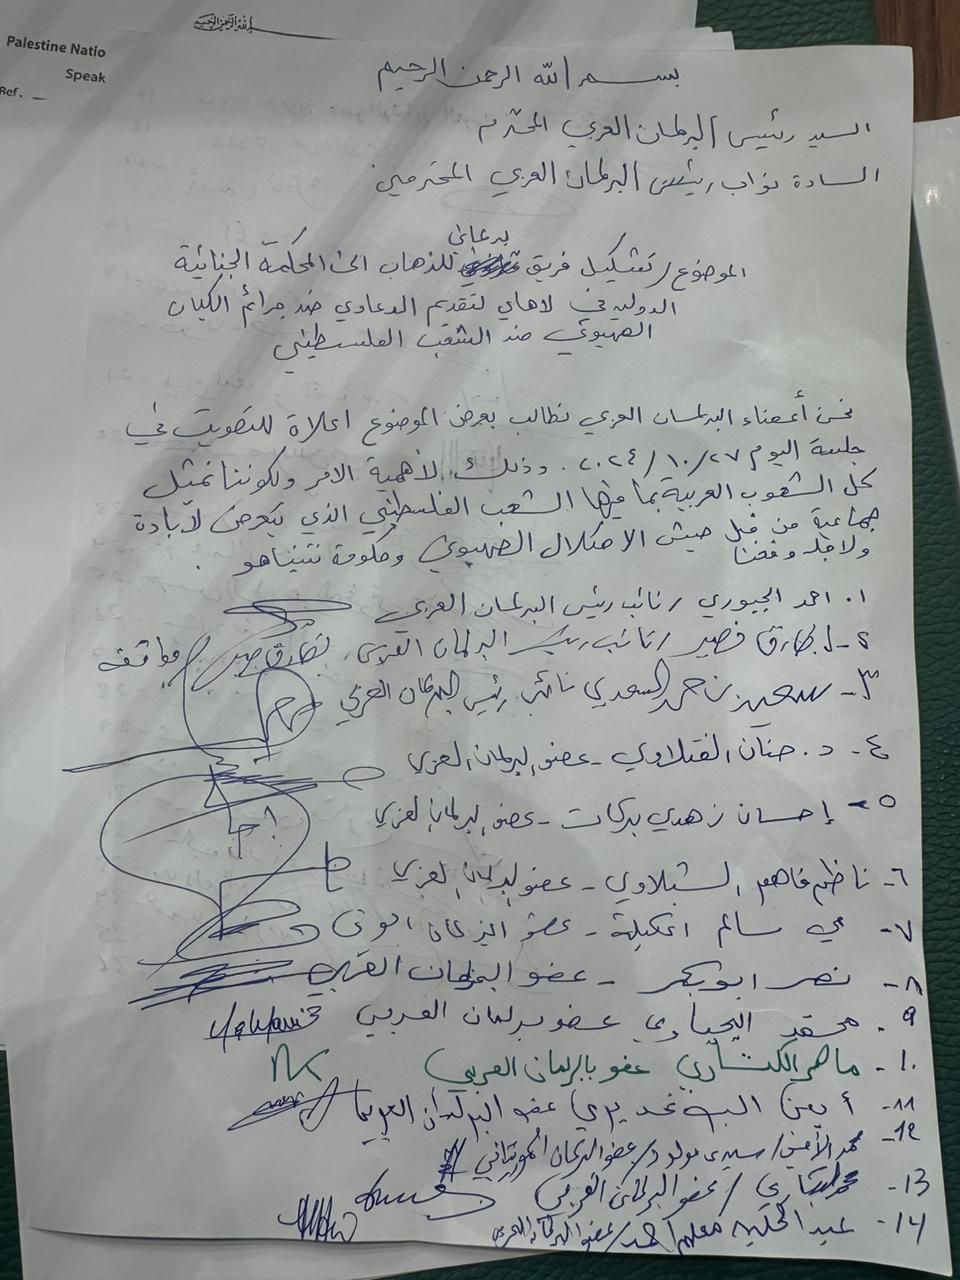 Palestine Natio
Speak
Ref.
بسم الله الرحمن الرحيم
السيد رئيس البرلمان العربي المحترم
السادة نواب رئيس البرلمان العربي المحترمين
برلماني
الموضوع / تشكيل فريق للذهاب الى المحكمة الجنائية
الدولية في لاهاي لتقديم الدعاوي ضد جرائم الكيان
الصهيوني ضد الشعب الفلسطيني
نحن أعضاء البرلمان العربي نطالب بعرض الموضوع اعلاة للتصويت في
جلسة اليوم ٢٠٢٤/١٠/٢٧. وذلك لأهمية الامر ولكوننا نمثل
كل الشعوب العربية بما فيها الشعب الفلسطيني الذي يتعرض لابادة
جماعية من قبل جيش الاحتلال الصهيوني وحكومة نتنياهو.
ولاجله وقعنا
١. احمد الجبوري / نائب رئيس البرلمان العربي
٢- طارق نصير / نائب رئيس البرلمان العربي موافقه
٣- سعيد بن حمد السعدي نائب رئيس البرلمان العربي
٤- د. حنان الفتلاوي - عضو البرلمان العربي
٥- إحسان زهدي بركات - عضو البرلمان العربي
٦- ناظم فاهم الشبلاوي - عضو البرلمان العربي
٧- مي سالم - عضو البرلمان
٨- نصر ابو بكر - عضو البرلمان العربي
٩. محمد اليحياوي عضو برلمان العربي
١٠- ماهر الكتاري عضو بالبرلمان العربي
11- أيمن عضو البرلمان العربي
12- محمد الأمين / سيدي مولود / عضو البرلمان الموريتاني
13- محمد / عضو البرلمان العربي
14- عبد الحكيم معلم احمد / عضو البرلمان العربي